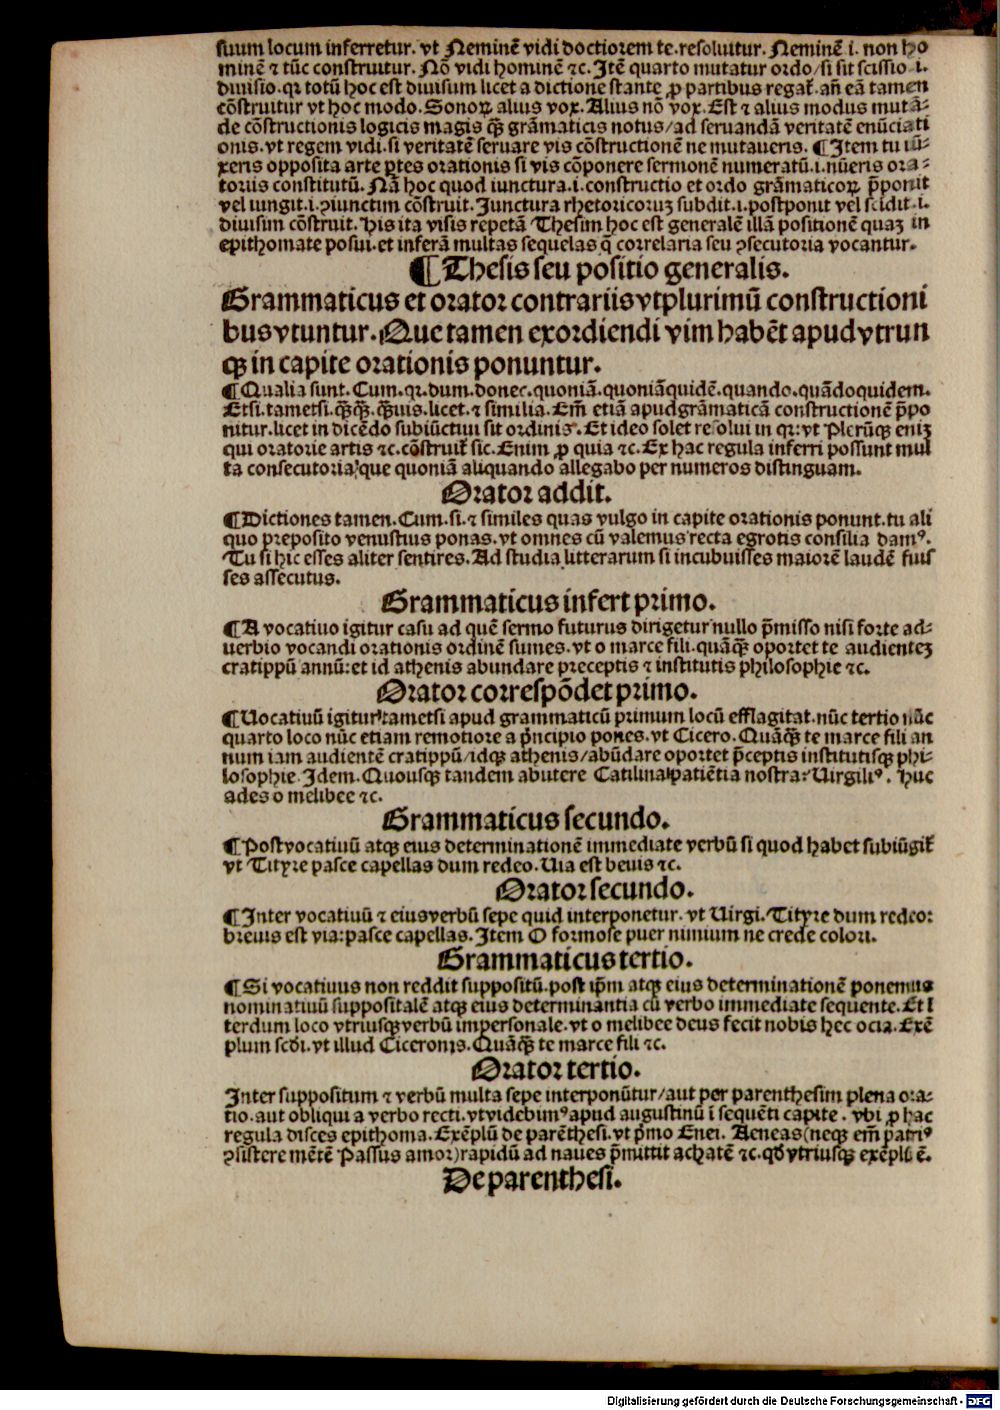 suum locum inferretur. vt Neminē vidi doctiorem te. resoluitur. Neminē i. non ho
minē ⁊ tūc construitur. Nō vidi hominē ⁊c. Itē quarto mutatur ordo/si sit scissio .i.
diuisio. qꝛ totū hoc est diuisum licet a dictione stante ꝓ partibus regat̄. añ eā tamen
cōstruitur vt hoc modo. Sonoꝝ alius vox. Alius nō vox. Est ⁊ alius modus mutā-
de cōstructionis logicis magis qꝫ̄ grāmaticis notus/ad seruandā veritatē enūciati
onis. vt regem vidi. si veritatē seruare vis cōstructionē ne mutaueris. ¶Item tu iū-
xeris opposita arte ꝑtes orationis si vis cōponere sermonē numeratū .i. nūeris ora-
toriis constitutū. Nā hoc quod iunctura .i. constructio et ordo grāmaticoꝝ p̄ponit
vel iungit .i. ꝯiunctim cōstruit. Iunctura rhetoricoruꝫ subdit .i. postponit vel scidit .i.
diuisim cōstruit. His ita visis repetā Thesim hoc est generalē illā positionē quaꝫ in
epithomate posui. et inferā multas sequelas q̄ correlaria seu ꝯsecutoria vocantur.
¶Thesis seu positio generalis.
Grammaticus et orator contrariis vtplurimū constructioni
bus vtuntur. Que tamen exordiendi vim habēt apud vtrun
qꝫ in capite orationis ponuntur.
¶Qualia sunt. Cum. qꝛ. dum. donec. quoniā. quoniāquidē. quando. quādoquidem.
Etsi. tametsi. qꝫ̄qꝫ̄. qꝫ̄uis. licet. ⁊ similia. Em̄ etiā apud grāmaticā constructionē p̄po
nitur. licet in dicēdo subiūctiui sit ordinis. Et ideo solet resolui in qꝛ: vt Plerūqꝫ eniꝫ
qui oratorie artis ⁊c. cōstruit̄ sic. Enim ꝓ quia ⁊c. Ex hac regula inferri possunt mul
ta consecutoria/que quoniā aliquando allegabo per numeros distinguam.
Orator addit.
¶Dictiones tamen. Cum. si. ⁊ similes quas vulgo in capite orationis ponunt. tu ali
quo preposito venustius ponas. vt omnes cū valemus recta egrotis consilia damꝰ.
Tu si hic esses aliter sentires. Ad studia litterarum si incubuisses maiorē laudē fuis
ses assecutus.
Grammaticus infert primo.
¶A vocatiuo igitur casu ad quē sermo futurus dirigetur nullo p̄misso nisi forte ad-
uerbio vocandi orationis ordinē sumes. vt o marce fili. quāqꝫ̄ oportet te audienteꝫ
cratippū annū: et id athenis abundare preceptis ⁊ institutis philosophie ⁊c.
Orator correspōdet primo.
¶Uocatiuū igitur/tametsi apud grammaticū primum locū efflagitat. nūc tertio nūc
quarto loco nūc etiam remotiore a pͥncipio pones. vt Cicero. Quāqꝫ̄ te marce fili an
num iam audientē cratippū/idqꝫ athenis/abūdare oportet p̄ceptis institutisqꝫ phi-
losophie. Idem. Quousqꝫ tandem abutere Catilina/patiētia nostra? Uirgiliꝰ. Huc
ades o melibee ⁊c.
Grammaticus secundo.
¶Post vocatiuū atqꝫ eius determinationē immediate verbū si quod habet subiūgit̄
vt Tityre pasce capellas dum redeo. Uia est beuis ⁊c.
Orator secundo.
¶Inter vocatiuū ⁊ eius verbū sepe quid interponetur. vt Uirgi. Tityre dum redeo:
breuis est via: pasce capellas. Item O formose puer nimium ne crede colori.
Grammaticus tertio.
¶Si vocatiuus non reddit suppositū. post ip̄m atqꝫ eius determinationē ponemus
nominatiuū suppositalē atqꝫ eius determinantia cū verbo immediate sequente. Et ī
terdum loco vtriusqꝫ verbū impersonale. vt o melibee deus fecit nobis hec ocia. Exē
plum scd̄i. vt illud Ciceronis. Quāqꝫ̄ te marce fili ⁊c.
Orator tertio.
Inter suppositum ⁊ verbū multa sepe interponūtur/aut per parenthesim plena ora-
tio. aut obliqui a verbo recti. vt videbimꝰ apud augustinū ī sequēti capite. vbi ꝓ hac
regula disces epithoma. Exēplū de parēthesi. vt pͥmo Enei. Aeneas (neqꝫ em̄ patriꝰ
ꝯsistere mētē Passus amor) rapidū ad naues p̄mittit achatē ⁊c. qd̄ vtriusqꝫ exēplū ē.
De parenthesi.
Digitalisierung gefördert durch die Deutsche Forschungsgemeinschaft - DFG